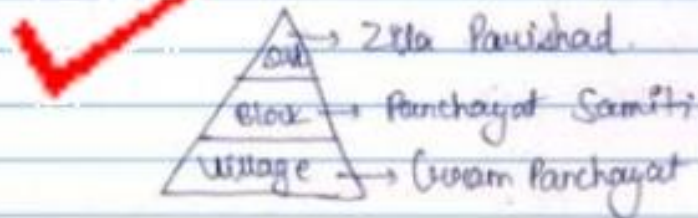 Dist → Zila Parishad.
Block → Panchayat Samiti
Village → Gram Panchayat